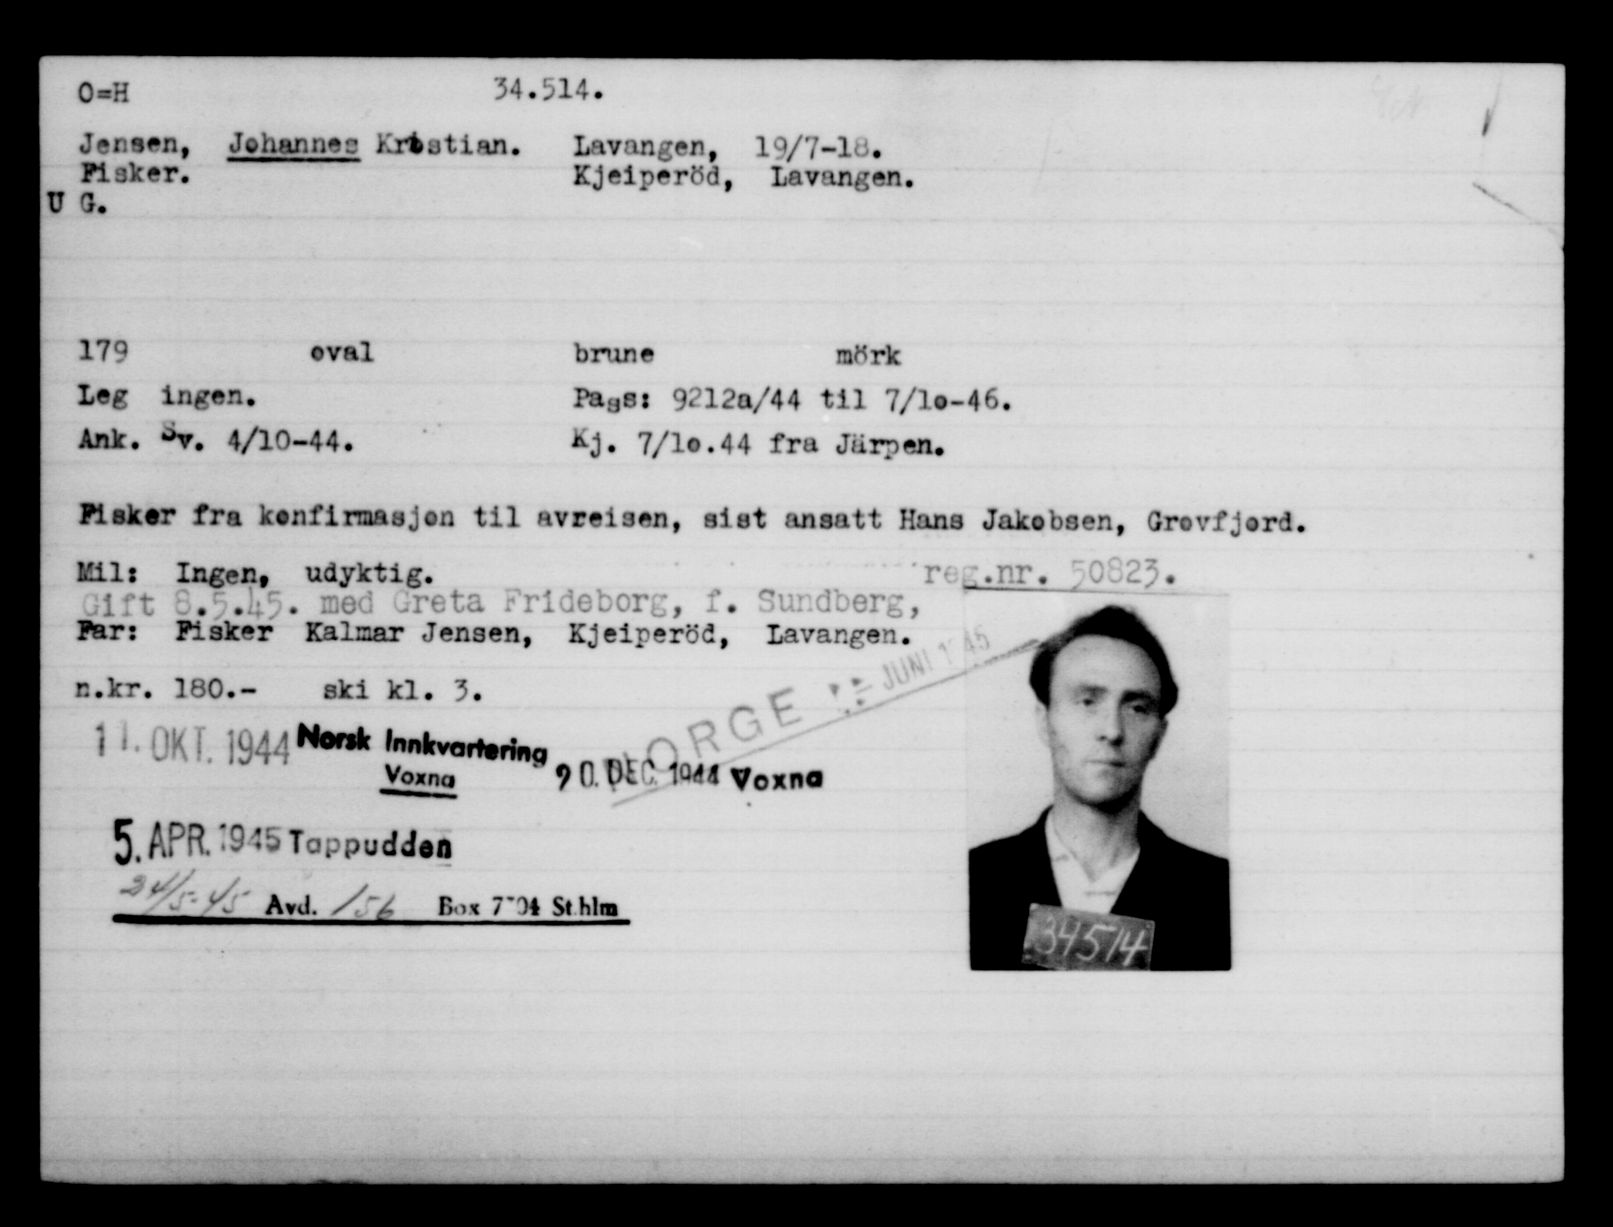 O=H 34.514.
Jensen, Johannes Kristian. Lavangen, 19/7-18.
Fisker. Kjeiperöd, Lavangen.
U G.
179 oval brune mörk
Leg ingen. Pass: 9212a/44 til 7/10-46.
Ank. Sv. 4/10-44. Kj. 7/10.44 fra Järpen.
Fisker fra konfirmasjon til avreisen, sist ansatt Hans Jakobsen, Grovfjord.
Mil: Ingen, udyktig. reg.nr. 50823.
Gift 8.5.45. med Greta Frideborg, f. Sundberg,
Far: Fisker Kalmar Jensen, Kjeiperöd, Lavangen.
n.kr. 180.- ski kl. 3.
NORGE JUNI 1945
11. OKT. 1944 Norsk Innkvartering
Voxna
20. DEC. 1944 Voxna
5. APR. 1945 Tappudden
24/5-45 Avd. 156 Box St.hlm
34514